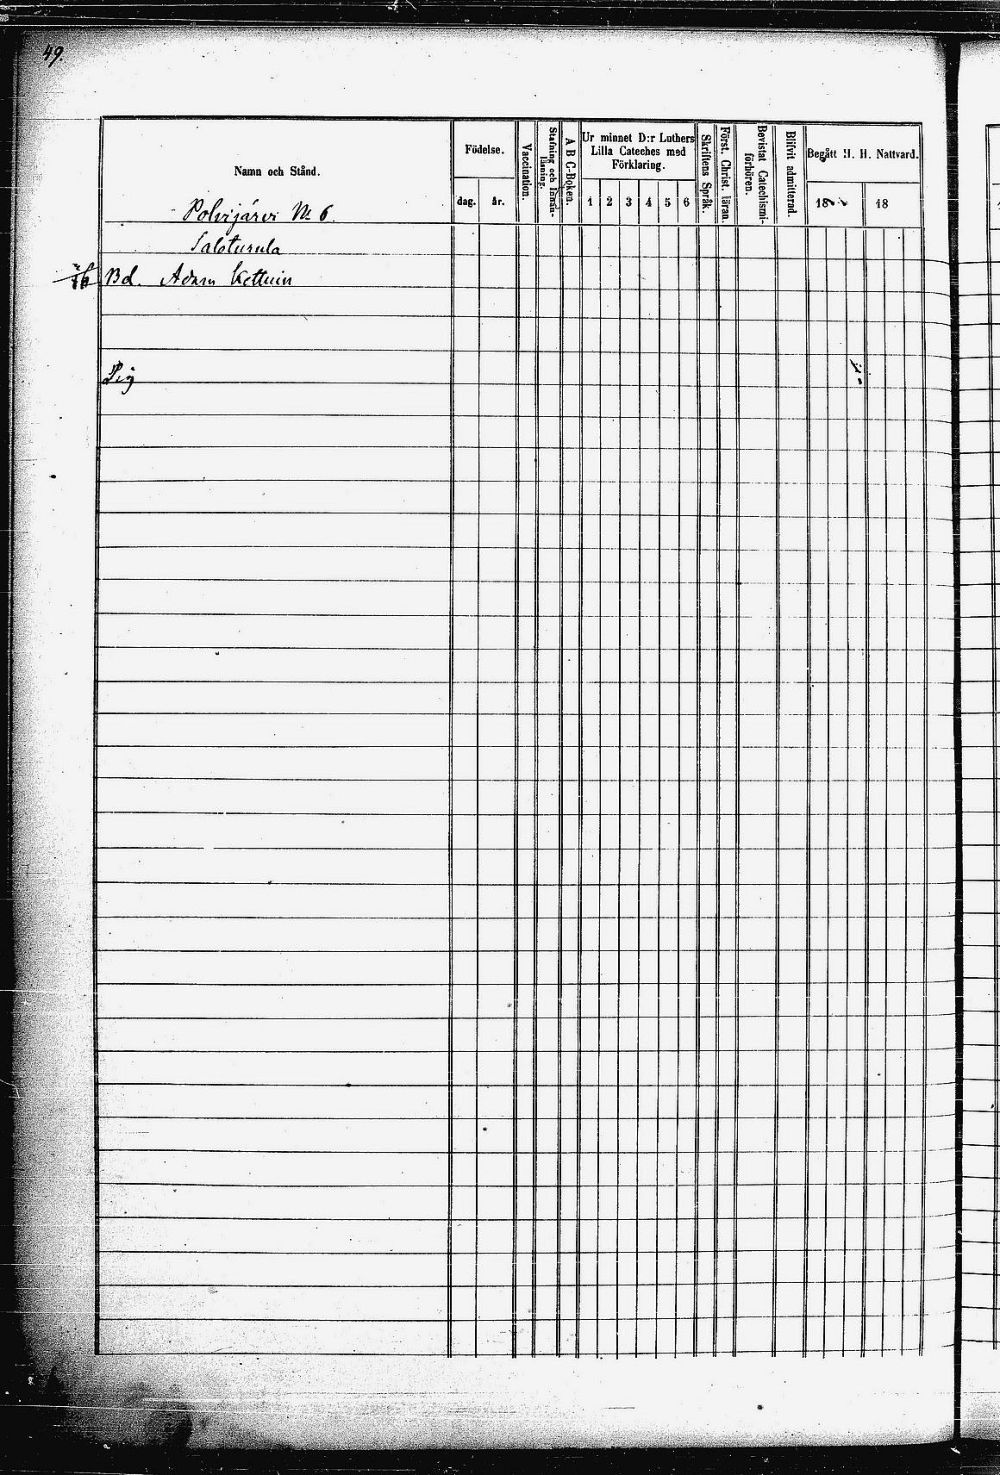 49.
Namn och Stånd.
Födelse.
dag. år.
Vaccination.
Stafning och Innan-
läsning.
A B C-Boken.
Ur minnet D:r Luthers
Lilla Cateches med
Förklaring.
1 2 3 4 5 6
Skriftens Språk.
Först. Christ. läran.
Bevistat Catechismi-
förhören.
Blifvit admitterad.
Begått H. H. Nattvard.
18 18
Polvijärvi № 6
Bd. Adam Kettuin
Pig